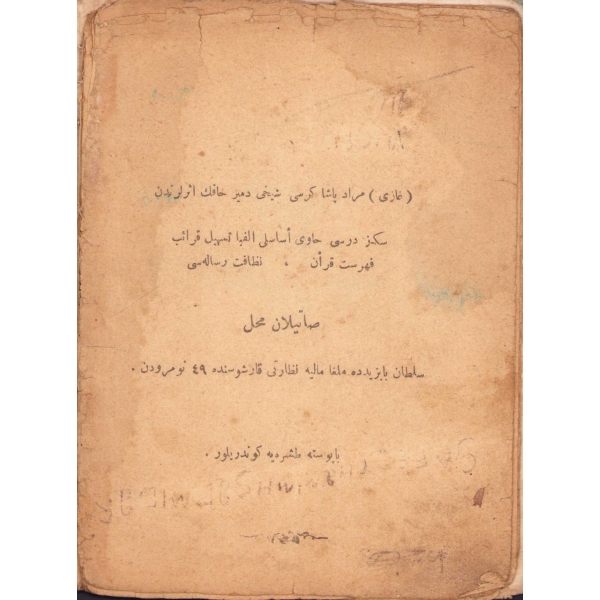 (غازی) مراد پاشا کرسی شیخی دمیر حافك اثرلرندن
سکز درسی حاوی أساسلی الفبا تسهیل قرائت
فهرست قرأن . نظافت رساله‌سی
صاتیلان محل
سلطان بایزیدده ملغا مالیه نظارتی قارشوسنده ٤٩ نومرودن .
بابوسته طشره‌یه کوندریلور .